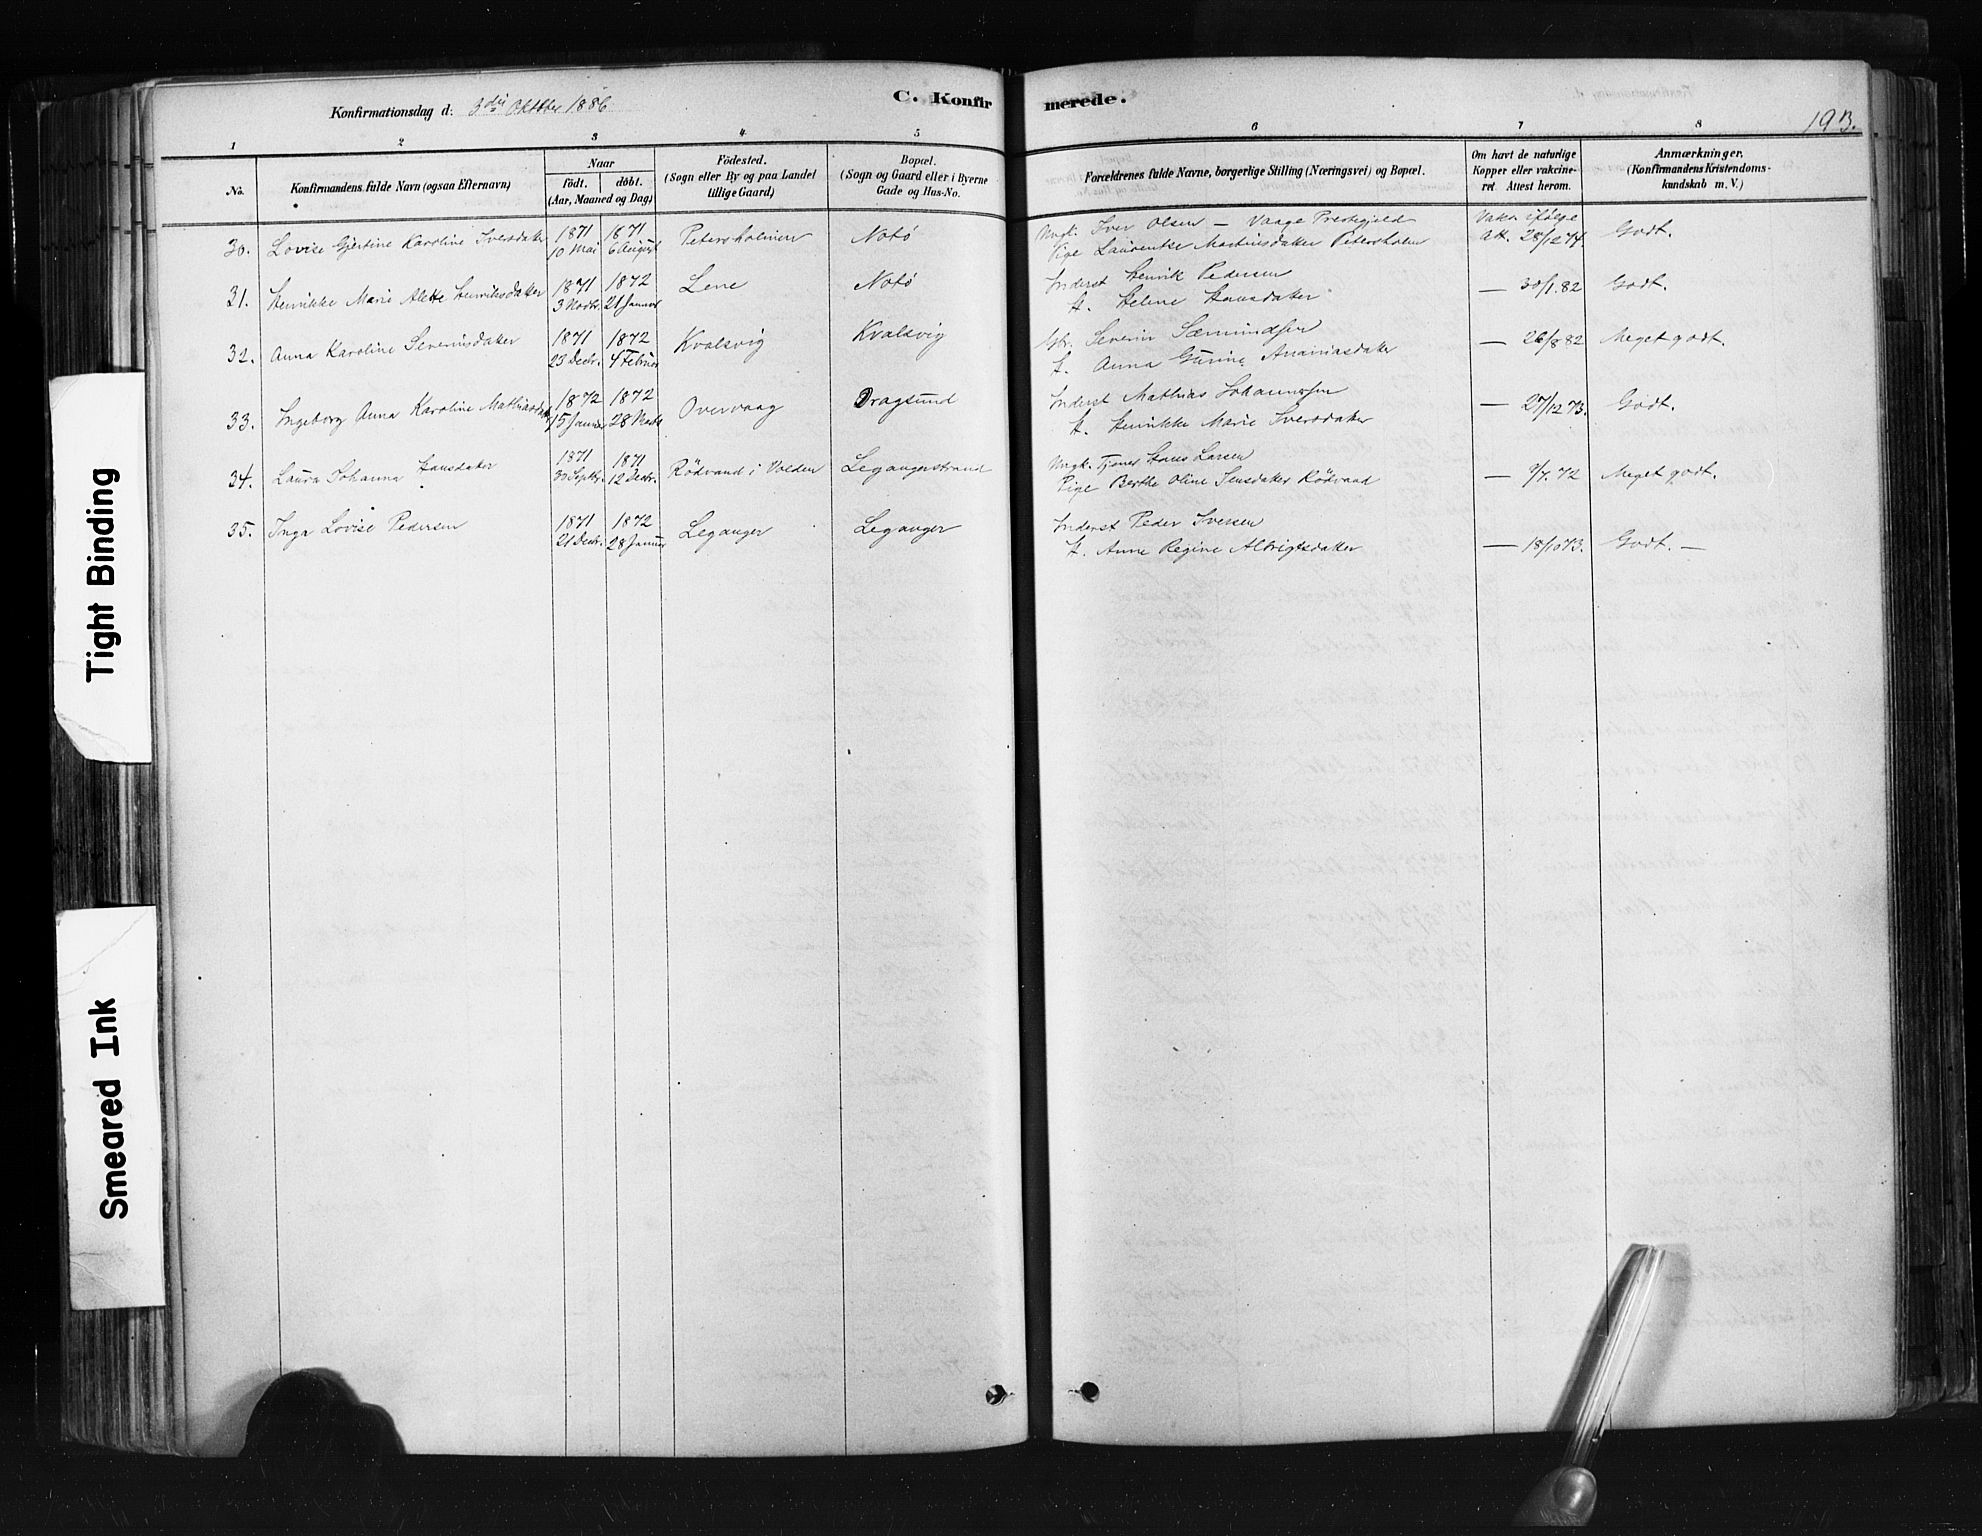 Konfirmationsdag d: 3die Oktober 1886
C. Konfirmerede.
193.
1 2 3 4 5 6 7 8
No. Konfirmandens fulde Navn (ogsaa Efternavn) Naar født. døbt. (Aar, Maaned og Dag) Fødested. (Sogn eller By og paa Landet tillige Gaard) Bopæl. (Sogn og Gaard eller i Byerne Gade og Hus-No. Forældrenes fulde Navne, borgerlige Stilling (Næringsvei) og Bopæl. Om havt de naturlige Kopper eller vakcineret. Attest herom. Anmærkninger. (Konfirmandens Kristendomskundskab m. V.)
30. Lovise Gjertine Karoline Iversdatter 1871 10 Mai 1871 6 August Petersholmen Notø Ungk. Iver Olsen — Vaage Prestegjeld Vakc. ifølge
Pige Laurentse Martinusdatter Petersholm Att. 28/12 74 Godt.
31. Henrikke Marie Alette Henriksdatter 1871 3 Novbr. 1872 21 Januar Lene Notø Inderst Henrik Pedersen
H. Helene Hansdatter — 30/1.82 Godt.
32. Anna Karoline Severinsdatter 1871 23 Decbr. 1872 4 Februar Kvalsvig Kvalsvig Gbr. Severin Sæmundsen
H. Anna Gurine Ananiasdatter — 26/8 82 Meget godt.
33. Ingeborg Anna Karoline Mathiasdatter 1872 15 Januar 1872 28 Overvaag Dragsund Inderst Mathias Johannessen
H. Henrikke Marie Iversdatter — 27/12 73. Godt.
34. Laura Johanna Hansdatter 1871 30 Septbr. 1871 12 Decbr. Rødvand i Volden Legangerstrand Ungk. Tjener Hans Larsen
Pige Berthe Oline Jensdatter Rødvand — 9/7.72 Meget godt.
35. Inga Lovise Pedersen 1871 21 Decbr. 1872 28 Januar Leganger Leganger Inderst Peder Iversen
H. Anne Regine Albrigtsdatter — 18/10 73. Godt. —
Tight Binding
Smeared Ink